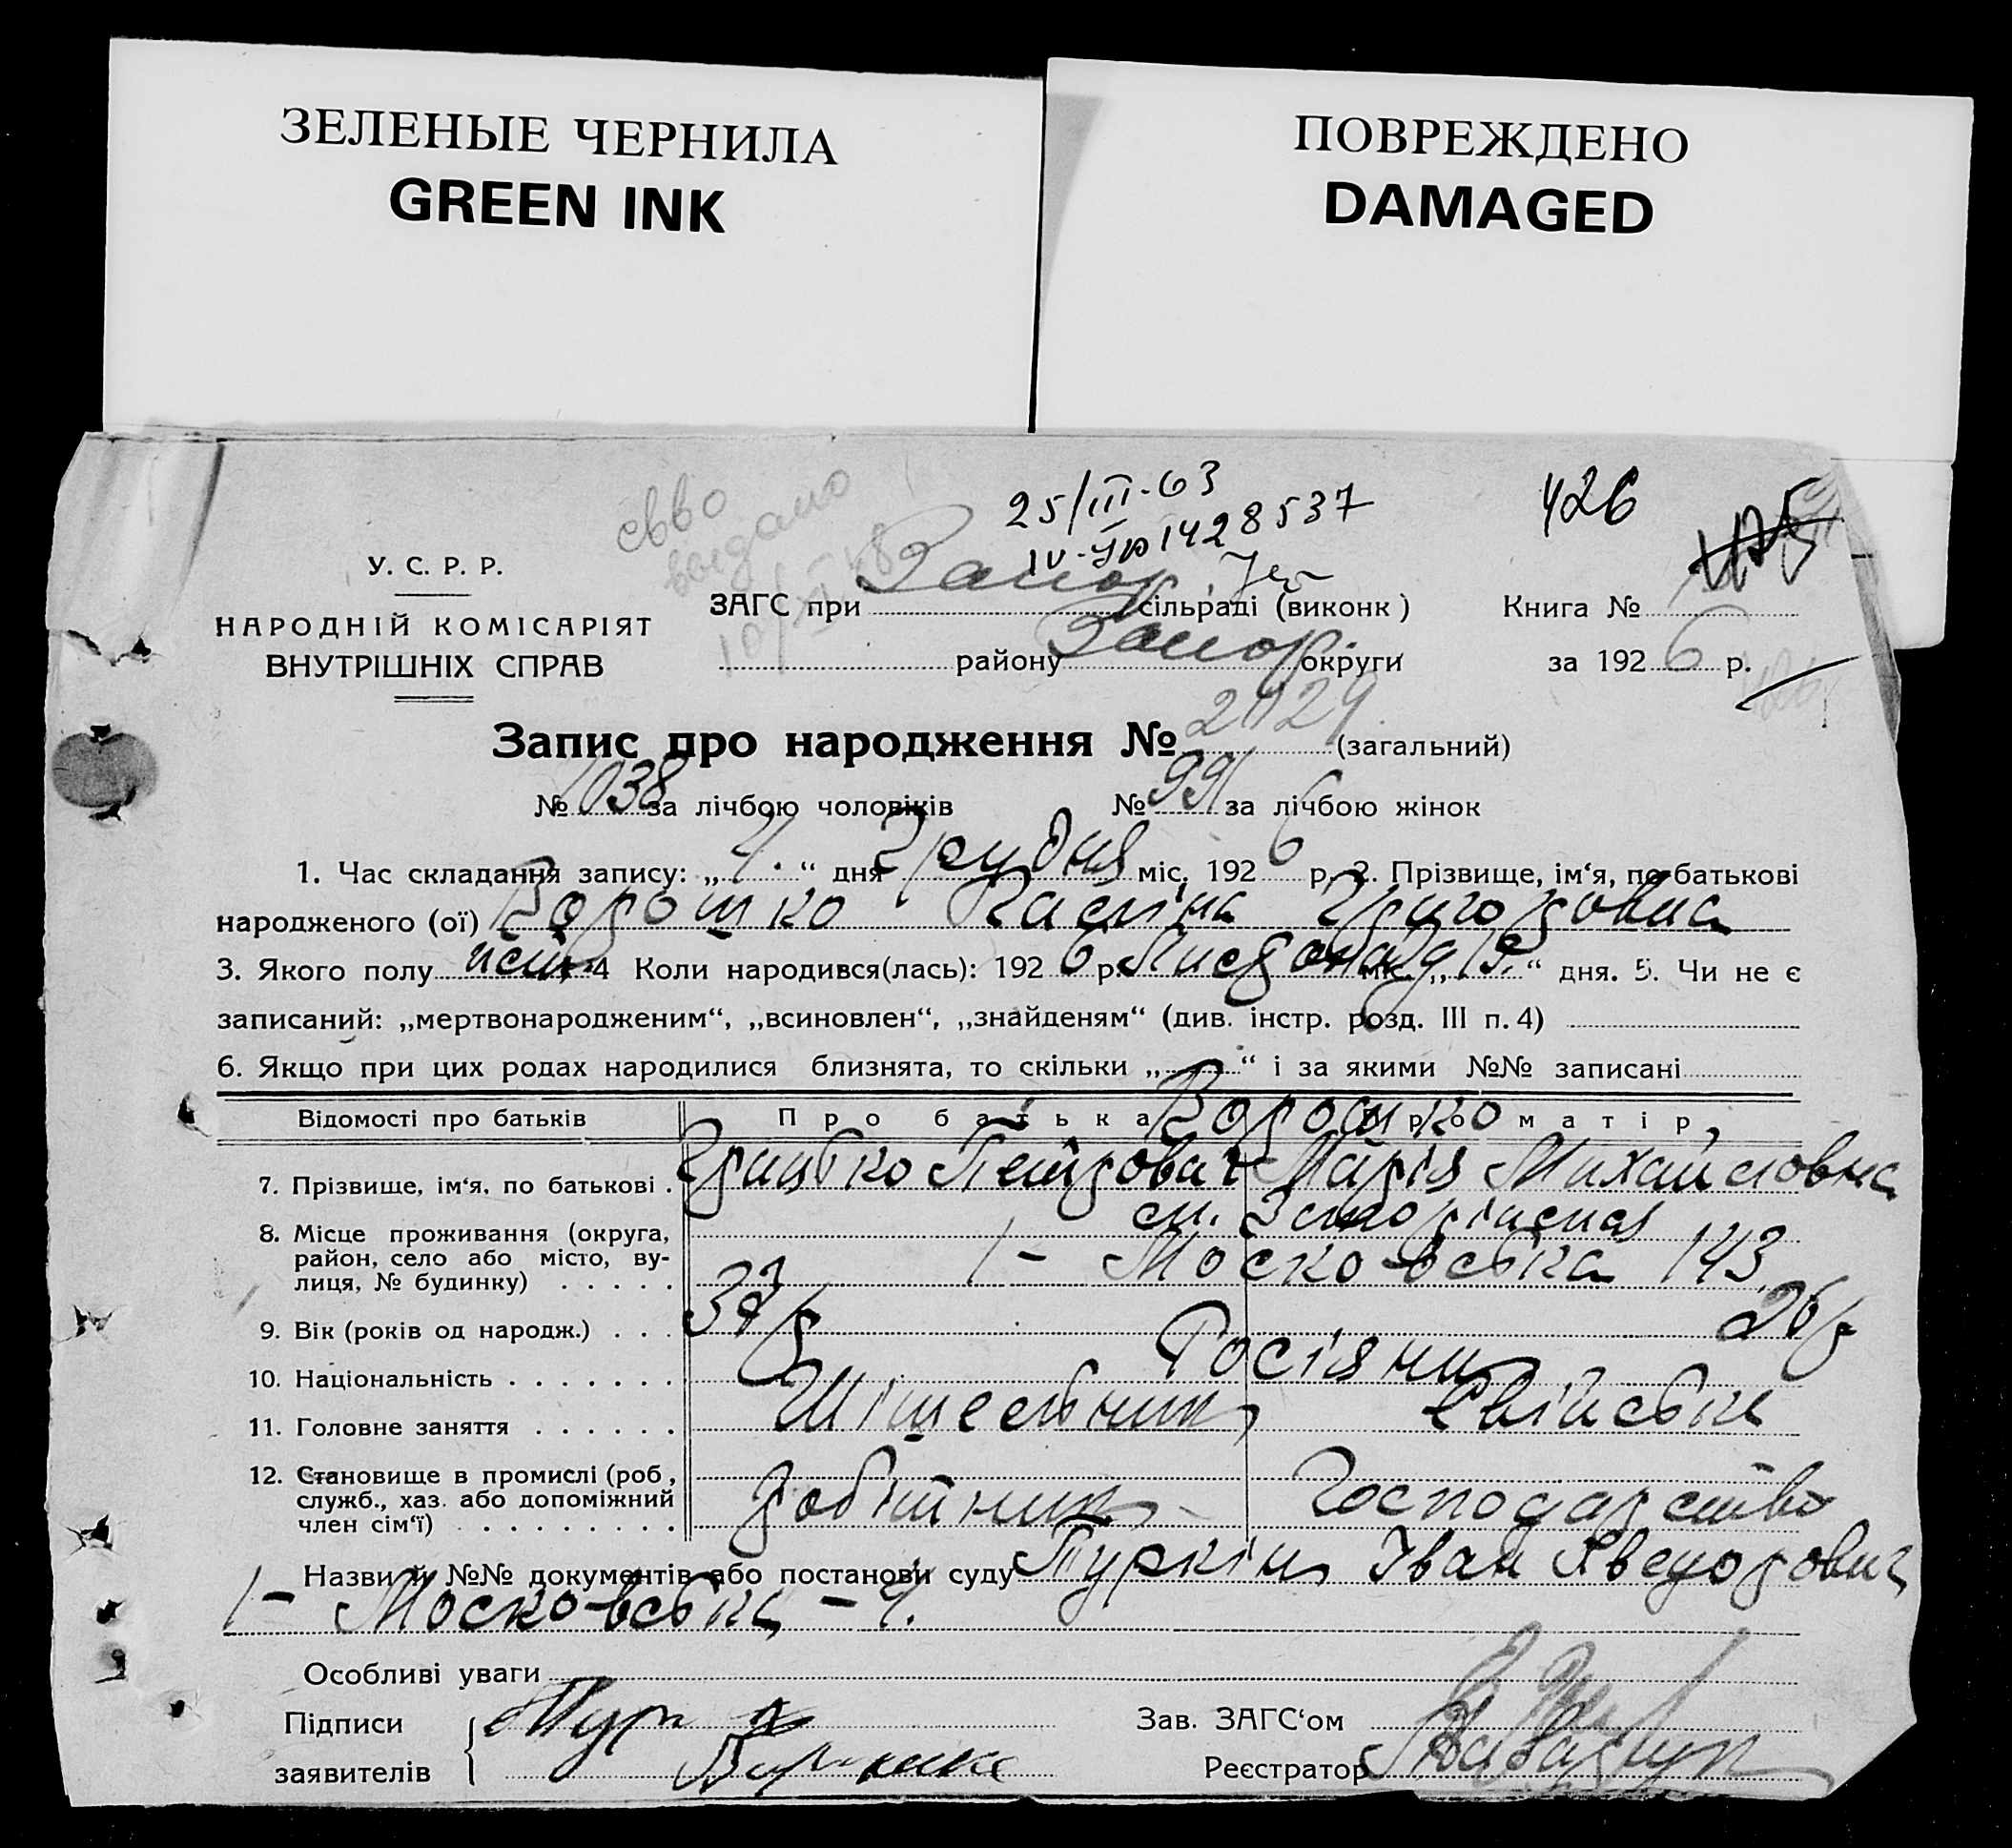 ЗЕЛЕНЫЕ ЧЕРНИЛА
GREEN INK
ПОВРЕЖДЕНО
DAMAGED
свво
выдано
25/III-63
426
IV-ЯР 1428537
У. С. Р. Р.
ЗАГС при Запор. сільраді (виконк)
Книга №
НАРОДНІЙ КОМІСАРІЯТ
ВНУТРІШНІХ СПРАВ
району Запор. округи
за 1926 р.
Запис про народження № 2029 (загальний)
№ 1038 за лічбою чоловіків № 991 за лічбою жінок
1. Час складання запису: „4.“ дня Грудня міс. 1926 р. 2. Прізвище, ім‘я, по батькові
народженого (ої) Ворошко Григоровна
3. Якого полу 4 Коли народився(лась): 1926 р. Листопад „19.“ дня. 5. Чи не є
записаний: „мертвонародженим“, „всиновлен“, „знайденям“ (див. інстр. розд. III п. 4)
6. Якщо при цих родах народилися близнята, то скільки „ “ і за якими №№ записані
Відомості про батьків Про батька Про матір
Ворошко
7. Прізвище, ім‘я, по батькові . Грицько Петрович Марія Михайловна
8. Місце проживання (округа,
район, село або місто, ву-
лиця, № будинку) . . . . .
1 – Московська 143
9. Вік (років од народж.) . . . 37 р 26 р
10. Національність . . . . . . . Росіяни
11. Головне заняття . . . . . . Свійське
12. Становище в промислі (роб.,
служб., хаз. або допоміжний
член сім‘ї) . . . . . . . .
робітник Господарство
Назви й №№ документів або постанови суду Туркін Іван Хведорович
1 – Московська – 4.
Особливі уваги
Підписи
заявителів
Зав. ЗАГС‘ом
Реєстратор